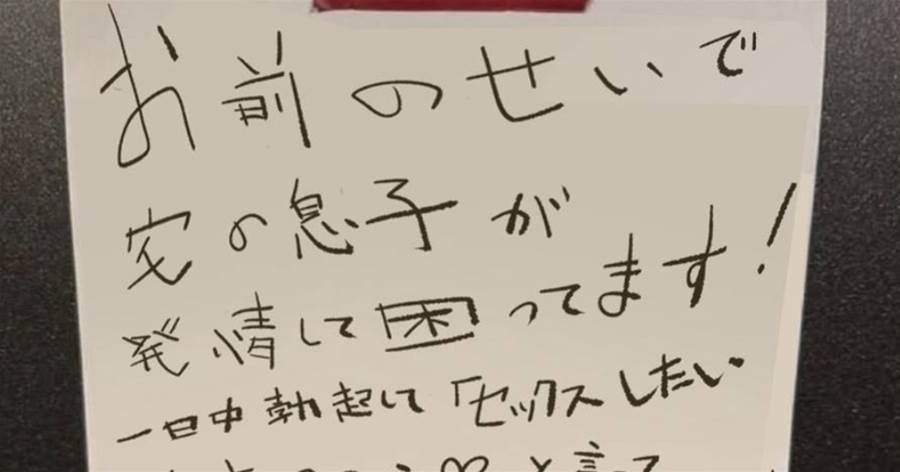 お前のせいで
宅の息子が
発情して困ってます!
一日中勃起して「セックスしたい